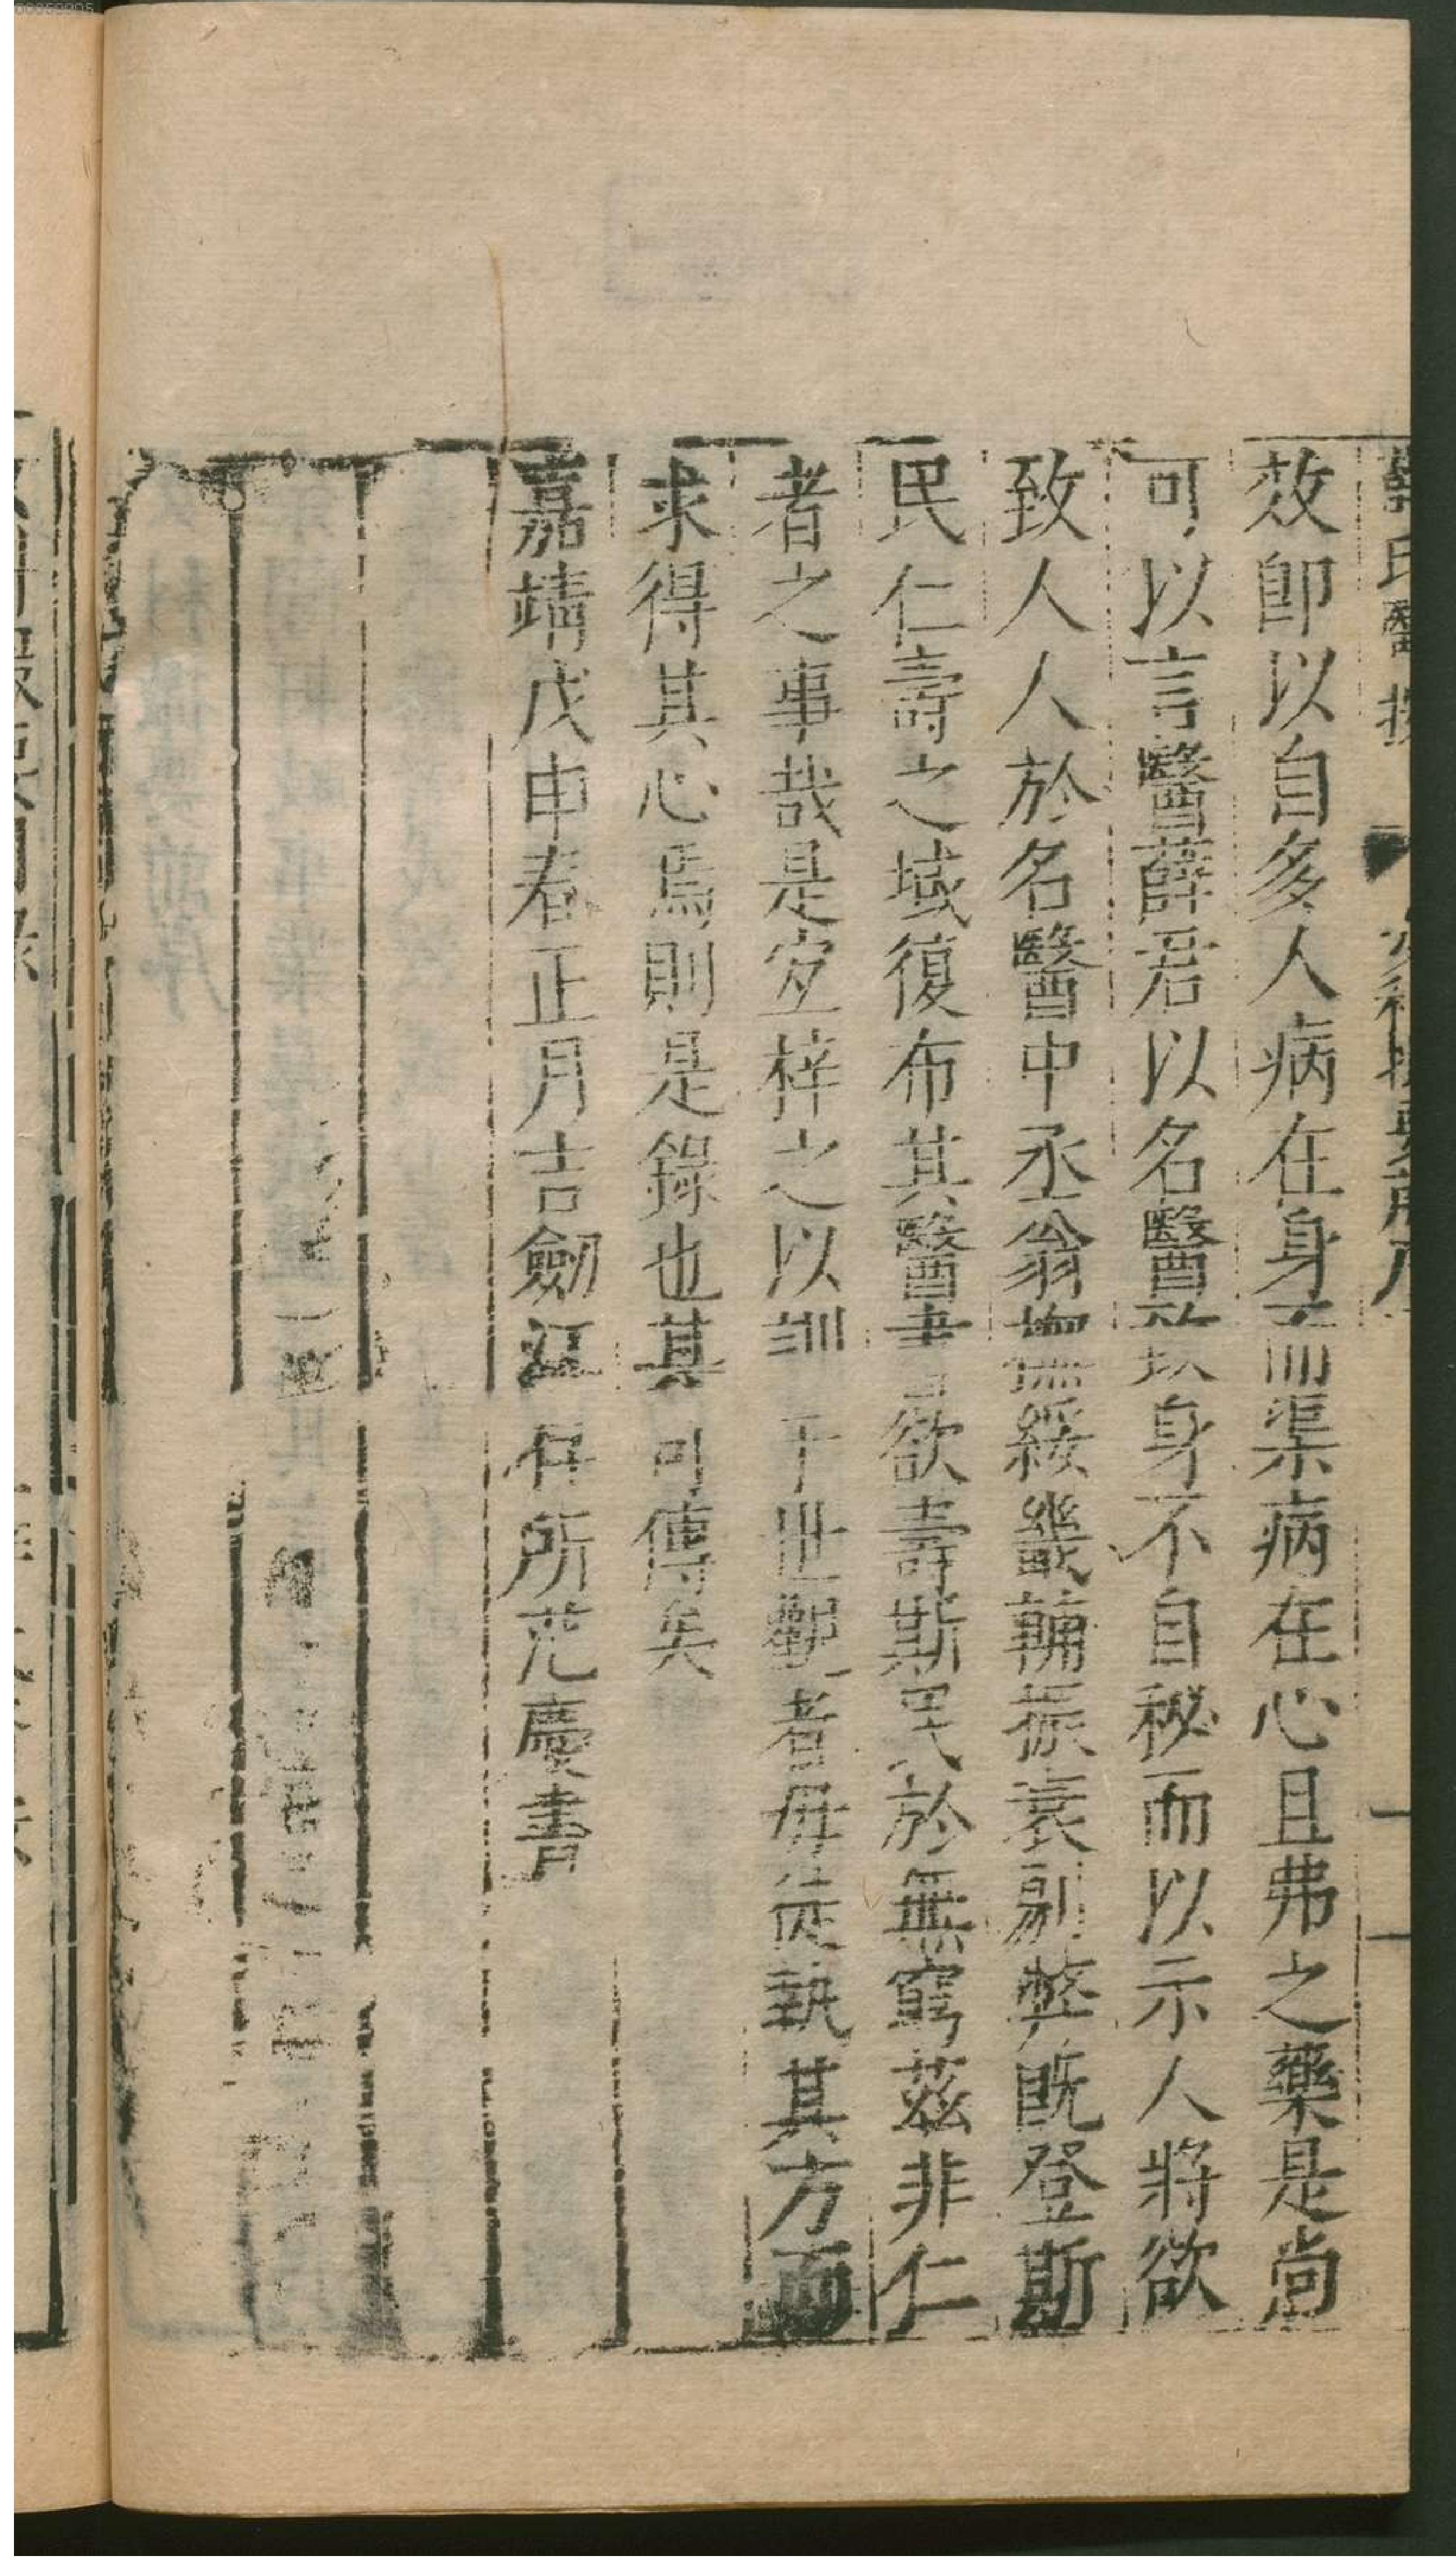 效卽以自多人病在身而渠病在心且弗之藥是尚
可以言醫薛君以名醫致身不自秘而以示人將欲
致人人於名醫中丞翁撫綏畿輔振衰剔弊既登斯
民仁壽之域復布其醫書欲壽斯民於無窮茲非仁
者之事哉是宜梓之以訓于世觀者毋徒執其方而
求得其心焉則是錄也其可傳矣
嘉靖戊申春正月吉劒江 所范慶書